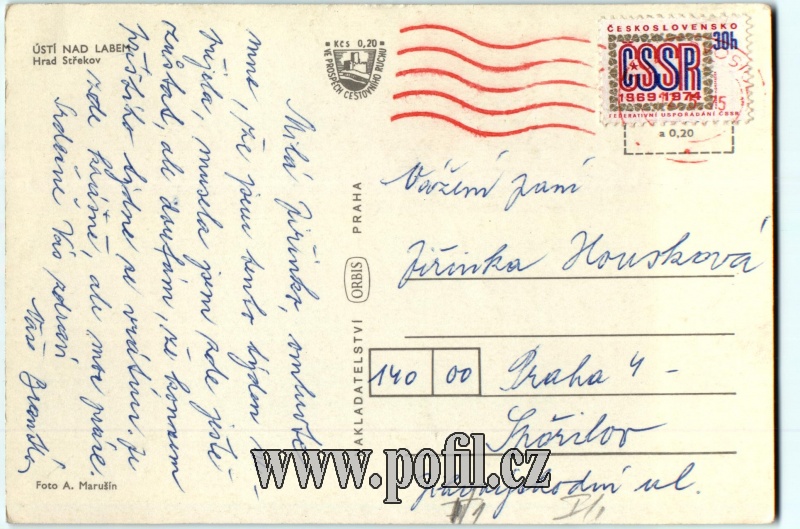 ÚSTÍ NAD LABEM
Hrad Střekov
Kčs 0,20
VE PROSPĚCH CESTOVNÍHO RUCHU
ČESKOSLOVENSKO
30h
ČSSR
1969-1974
FEDERATIVNÍ USPOŘÁDÁNÍ ČSSR
a 0,20
Milá Jiřinko, omluvte
mne, že jsem tento týden ne-
přijela, musela jsem zde ještě
zůstat, ale doufám, že koncem
příštího týdne se vrátím. Je
zde krásně, ale moc práce.
Srdečně Vás zdraví
Vaše
Foto A. Marušín
NAKLADATELSTVÍ ORBIS PRAHA
Vážení paní
Jiřinka Housková
140 00 Praha 4 -
Spořilov
ul.
www.pofil.cz